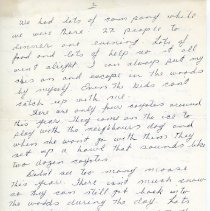 2
We had lots of company while
we were there 22 people to
dinner one evening lots of
food and lots of help so it all
went alright I can always put my
skis on and escape in the woods
by myself. Even the kids cant
catch up with me
There are only four coyotes around
this year. They come on the ice to
play with the neighbours dog and
when she wont go with them they
set up a howl that sounds like
two dozen coyotes
Didnt see too many moose
this year. There isnt much snow
so they can still get back into
the woods during the day. Lots